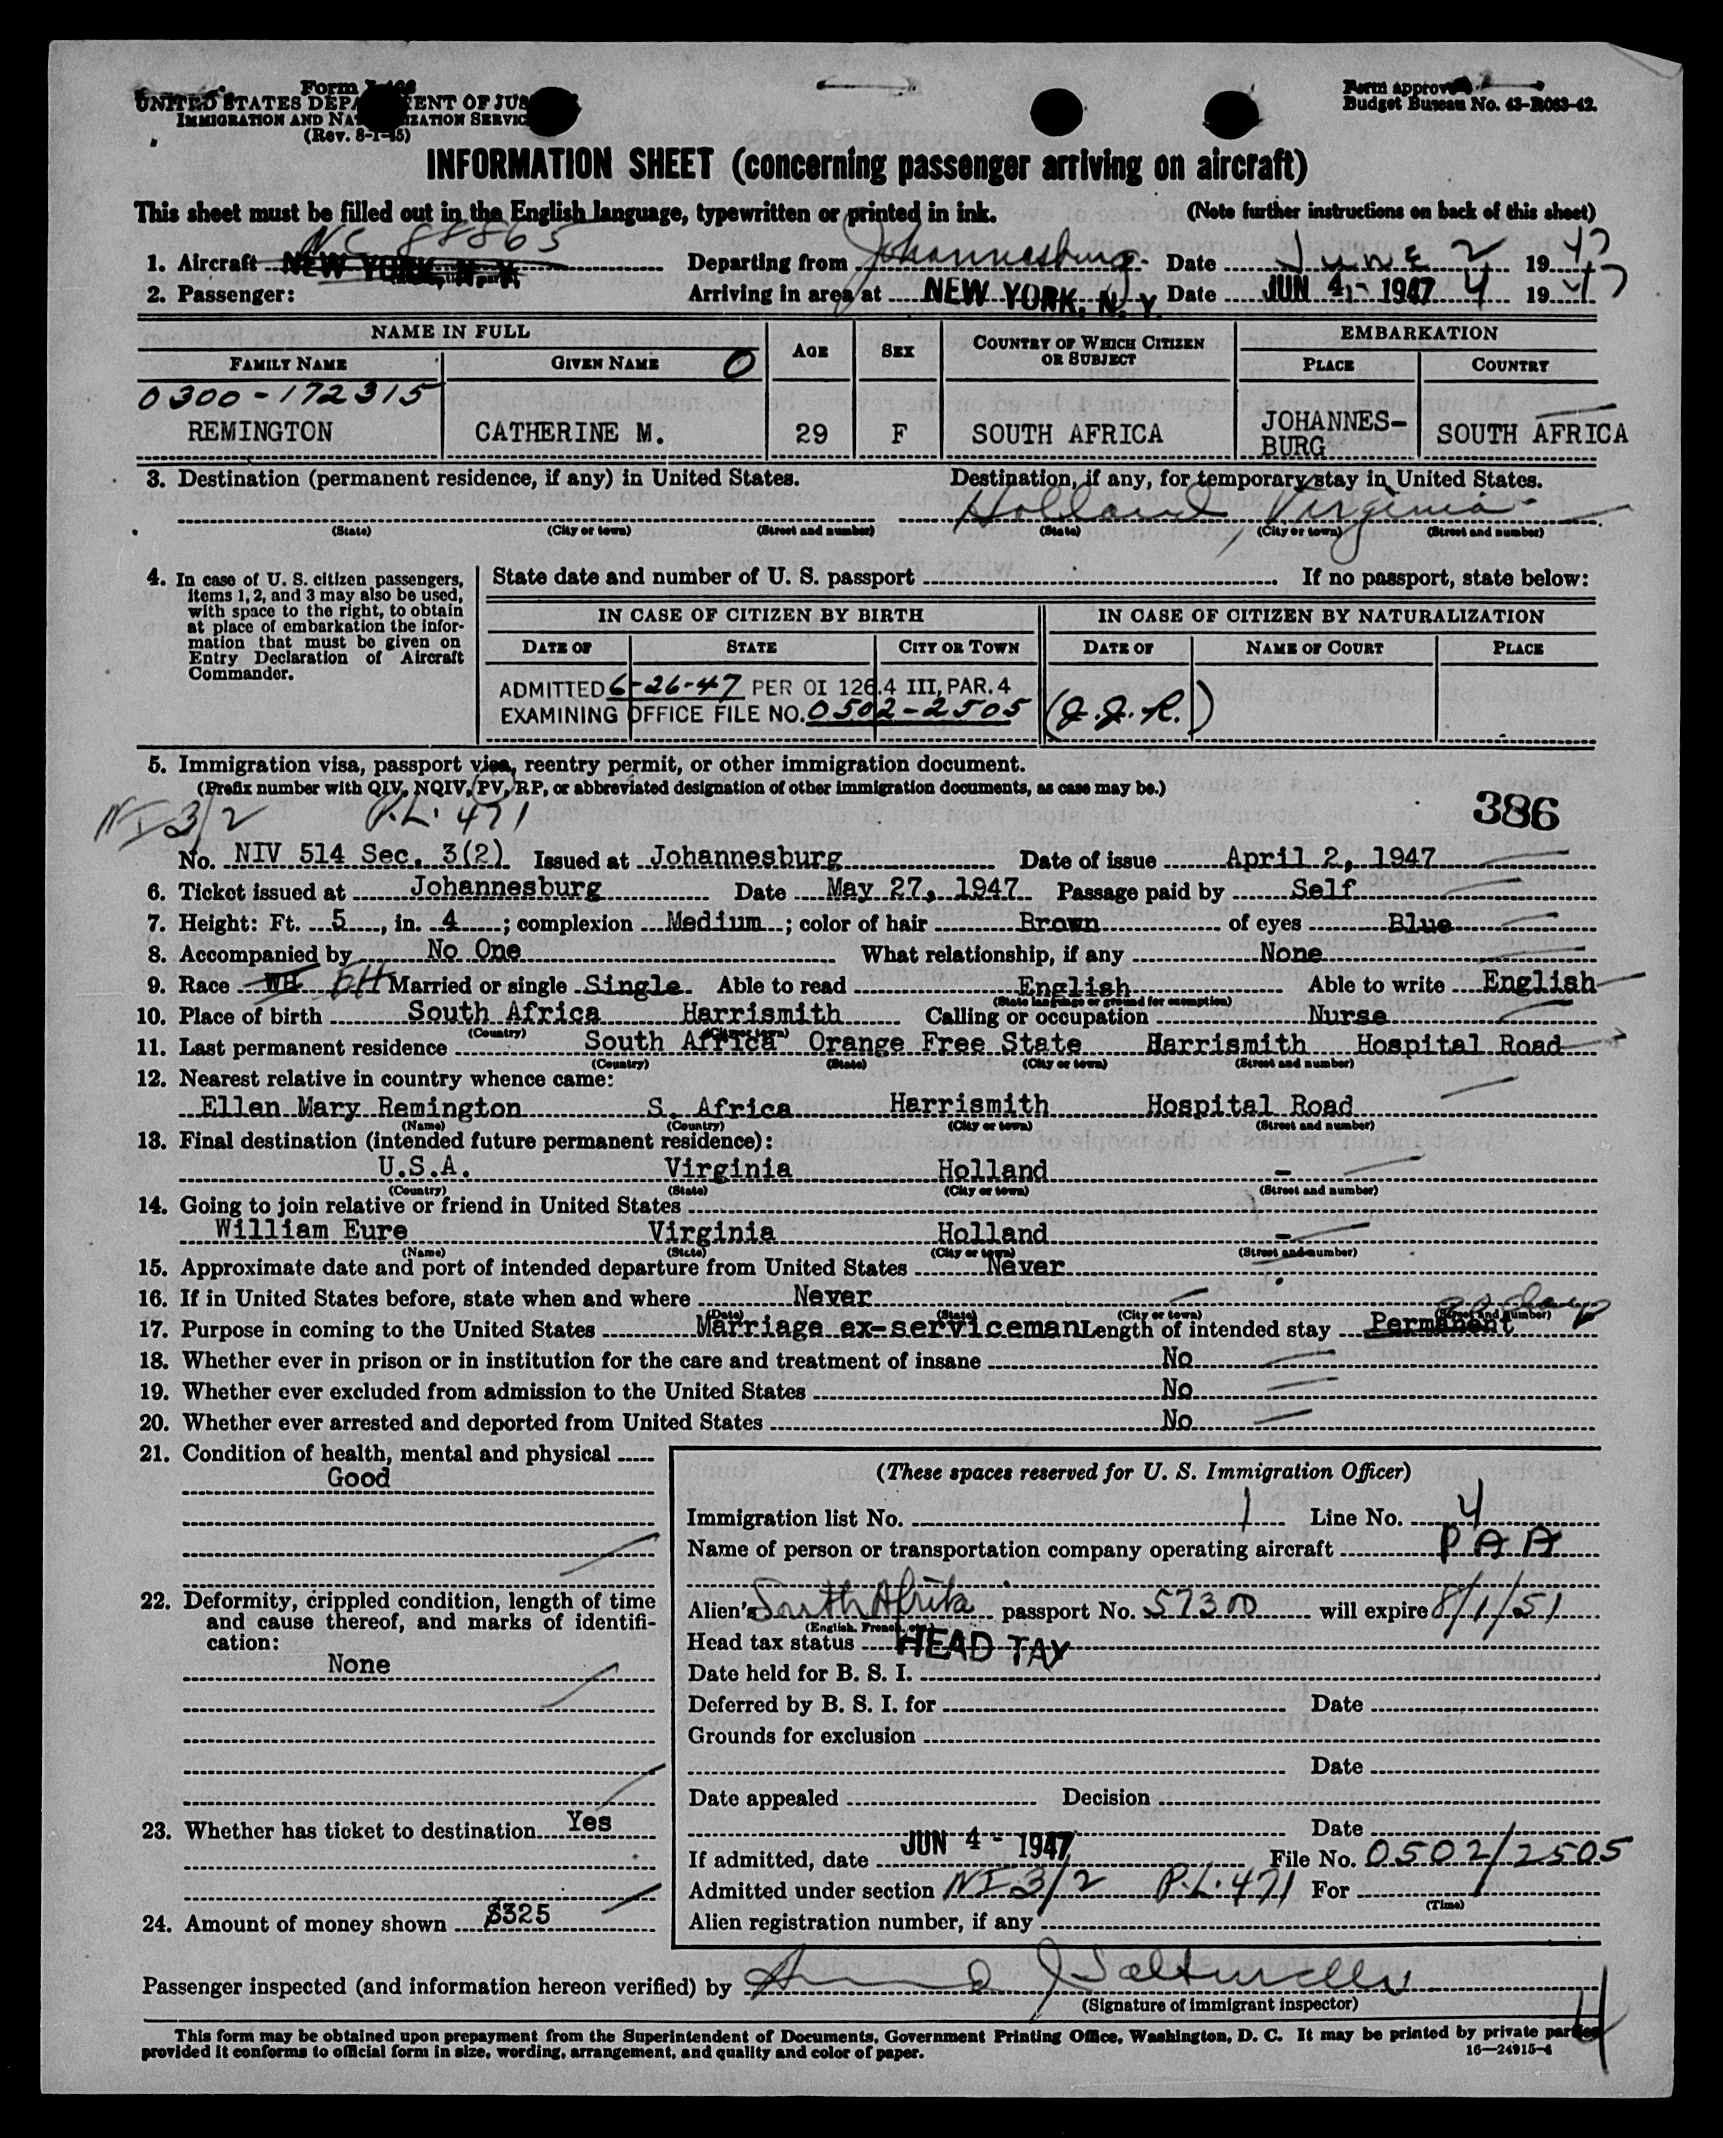 Form I-466
UNITED STATES DEPARTMENT OF JUSTICE
IMMIGRATION AND NATURALIZATION SERVICE
(Rev. 8-1-45)
Form approved
Budget Bureau No. 43-R063-42.
INFORMATION SHEET (concerning passenger arriving on aircraft)
This sheet must be filled out in the English language, typewritten or printed in ink. (Note further instructions on back of this sheet)
NC 88865
1. Aircraft NEW YORK, N. Y. Departing from Johannesburg Date June 2 1947
2. Passenger: Arriving in area at NEW YORK, N. Y. Date JUN 4 - 1947 4 1947
NAME IN FULL AGE SEX COUNTRY OF WHICH CITIZEN OR SUBJECT EMBARKATION
FAMILY NAME GIVEN NAME 0 PLACE COUNTRY
0300-172315
REMINGTON CATHERINE M. 29 F SOUTH AFRICA JOHANNES-BURG SOUTH AFRICA
3. Destination (permanent residence, if any) in United States. Destination, if any, for temporary stay in United States.
Holland, Virginia
(State) (City or town) (Street and number) (State) (City or town) (Street and number)
4. In case of U. S. citizen passengers, items 1, 2, and 3 may also be used, with space to the right, to obtain at place of embarkation the information that must be given on Entry Declaration of Aircraft Commander.
State date and number of U. S. passport If no passport, state below:
IN CASE OF CITIZEN BY BIRTH IN CASE OF CITIZEN BY NATURALIZATION
DATE OF STATE CITY OR TOWN DATE OF NAME OF COURT PLACE
ADMITTED 6-26-47 PER OI 126.4 III, PAR. 4
EXAMINING OFFICE FILE NO. 0502-2505 (J.J.R.)
5. Immigration visa, passport visa, reentry permit, or other immigration document.
(Prefix number with QIV, NQIV, PV, RP, or abbreviated designation of other immigration documents, as case may be.)
NI 3/2 P.L. 471 386
No. NIV 514 Sec. 3(2) Issued at Johannesburg Date of issue April 2, 1947
6. Ticket issued at Johannesburg Date May 27, 1947 Passage paid by Self
7. Height: Ft. 5, in. 4; complexion Medium; color of hair Brown of eyes Blue
8. Accompanied by No One What relationship, if any None
9. Race WH Married or single Single Able to read English Able to write English
(State language or ground for exemption)
10. Place of birth South Africa Harrismith Calling or occupation Nurse
(Country) (City or town)
11. Last permanent residence South Africa Orange Free State Harrismith Hospital Road
(Country) (State) (City or town) (Street and number)
12. Nearest relative in country whence came:
Ellen Mary Remington S. Africa Harrismith Hospital Road
(Name) (Country) (City or town) (Street and number)
13. Final destination (intended future permanent residence):
U.S.A. Virginia Holland -
(Country) (State) (City or town) (Street and number)
14. Going to join relative or friend in United States
William Eure Virginia Holland -
(Name) (State) (City or town) (Street and number)
15. Approximate date and port of intended departure from United States Never
16. If in United States before, state when and where Never
(Date) (State) (City or town) (Street and number)
17. Purpose in coming to the United States Marriage ex-serviceman Length of intended stay Permanent
18. Whether ever in prison or in institution for the care and treatment of insane No
19. Whether ever excluded from admission to the United States No
20. Whether ever arrested and deported from United States No
21. Condition of health, mental and physical
Good
22. Deformity, crippled condition, length of time and cause thereof, and marks of identification:
None
23. Whether has ticket to destination Yes
24. Amount of money shown $325
(These spaces reserved for U. S. Immigration Officer)
Immigration list No. 1 Line No. 4
Name of person or transportation company operating aircraft PAA
Alien's South Africa passport No. 57300 will expire 8/1/51
(English, French, etc.)
Head tax status HEAD TAX
Date held for B. S. I.
Deferred by B. S. I. for Date
Grounds for exclusion
Date
Date appealed Decision
Date
If admitted, date JUN 4 - 1947 File No. 0502/2505
Admitted under section NI 3/2 P.L. 471 For
(Time)
Alien registration number, if any
Passenger inspected (and information hereon verified) by
(Signature of immigrant inspector)
4
This form may be obtained upon prepayment from the Superintendent of Documents, Government Printing Office, Washington, D. C. It may be printed by private parties
provided it conforms to official form in size, wording, arrangement, and quality and color of paper. 16—24915-4